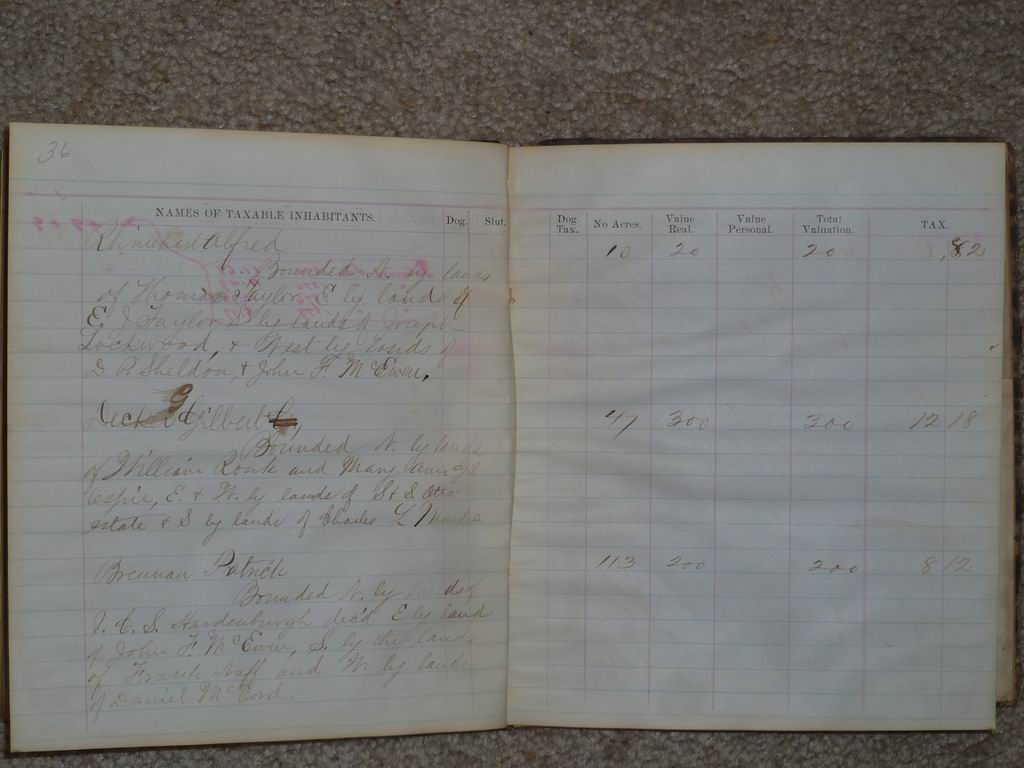 36
NAMES OF TAXABLE INHABITANTS. Dog. Slut. Dog Tax. No Acres. Value Real. Value Personal. Total Valuation. TAX.
Alfred 10 20 20 .82
Bounded N. by lands
of Thomas Taylor E by lands of
E. J Taylor S by lands of Joseph
Lockwood, & West by lands of
D P. Sheldon, & John F. McEwen.
Decker Gilbert 47 300 300 12 18
Bounded N. by lands
of William Ronk and Mary Ann Gil
espie, E & W. by lands of S & S Otis
estate & S by lands of Charles L Martin
Brennan Patrick 113 200 200 8 12
Bounded N. by lands of
J. C. S. Hardenburgh dec'd E by lands
of John F. McEwen, S. by the lands
of Frank Naff and W. by lands
of Daniel McCord.